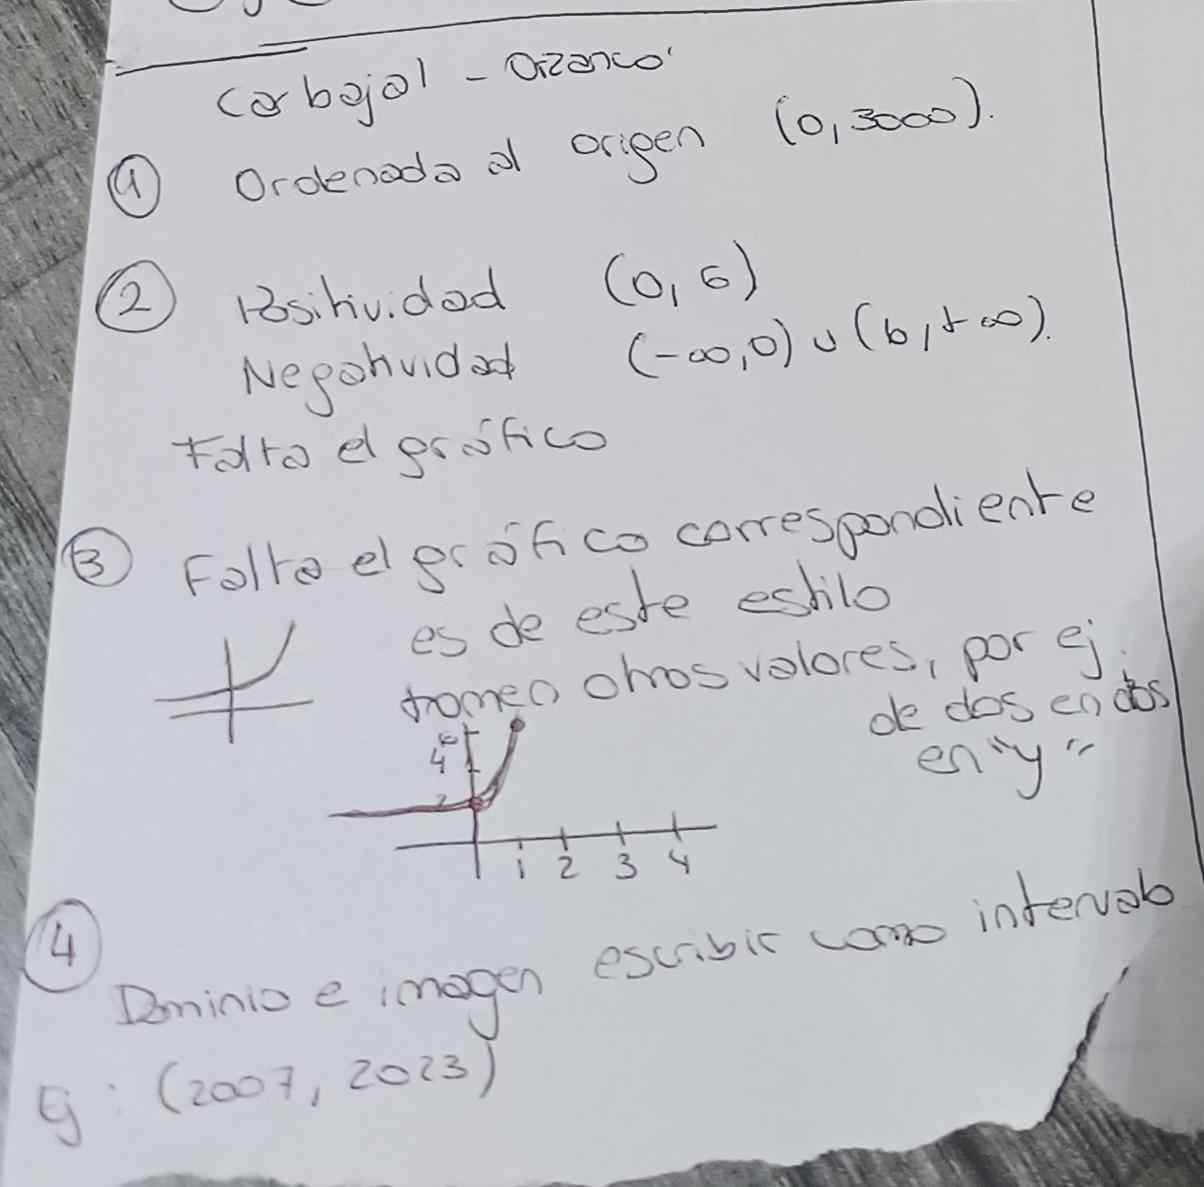 Carbajal - Orzanco
① Ordenada al origen (0, 3000).
② Positividad (0, 6)
Negatividad (-∞, 0) ∪ (6, +∞).
Falta el gráfico
③ Falta el gráfico correspondiente
es de este estilo
tomen otros valores, por ej.
de dos en dos
en "y"
6
4
2
1 2 3 4
④ Dominio e imagen escribir como intervalo
Ej: (2007, 2023)